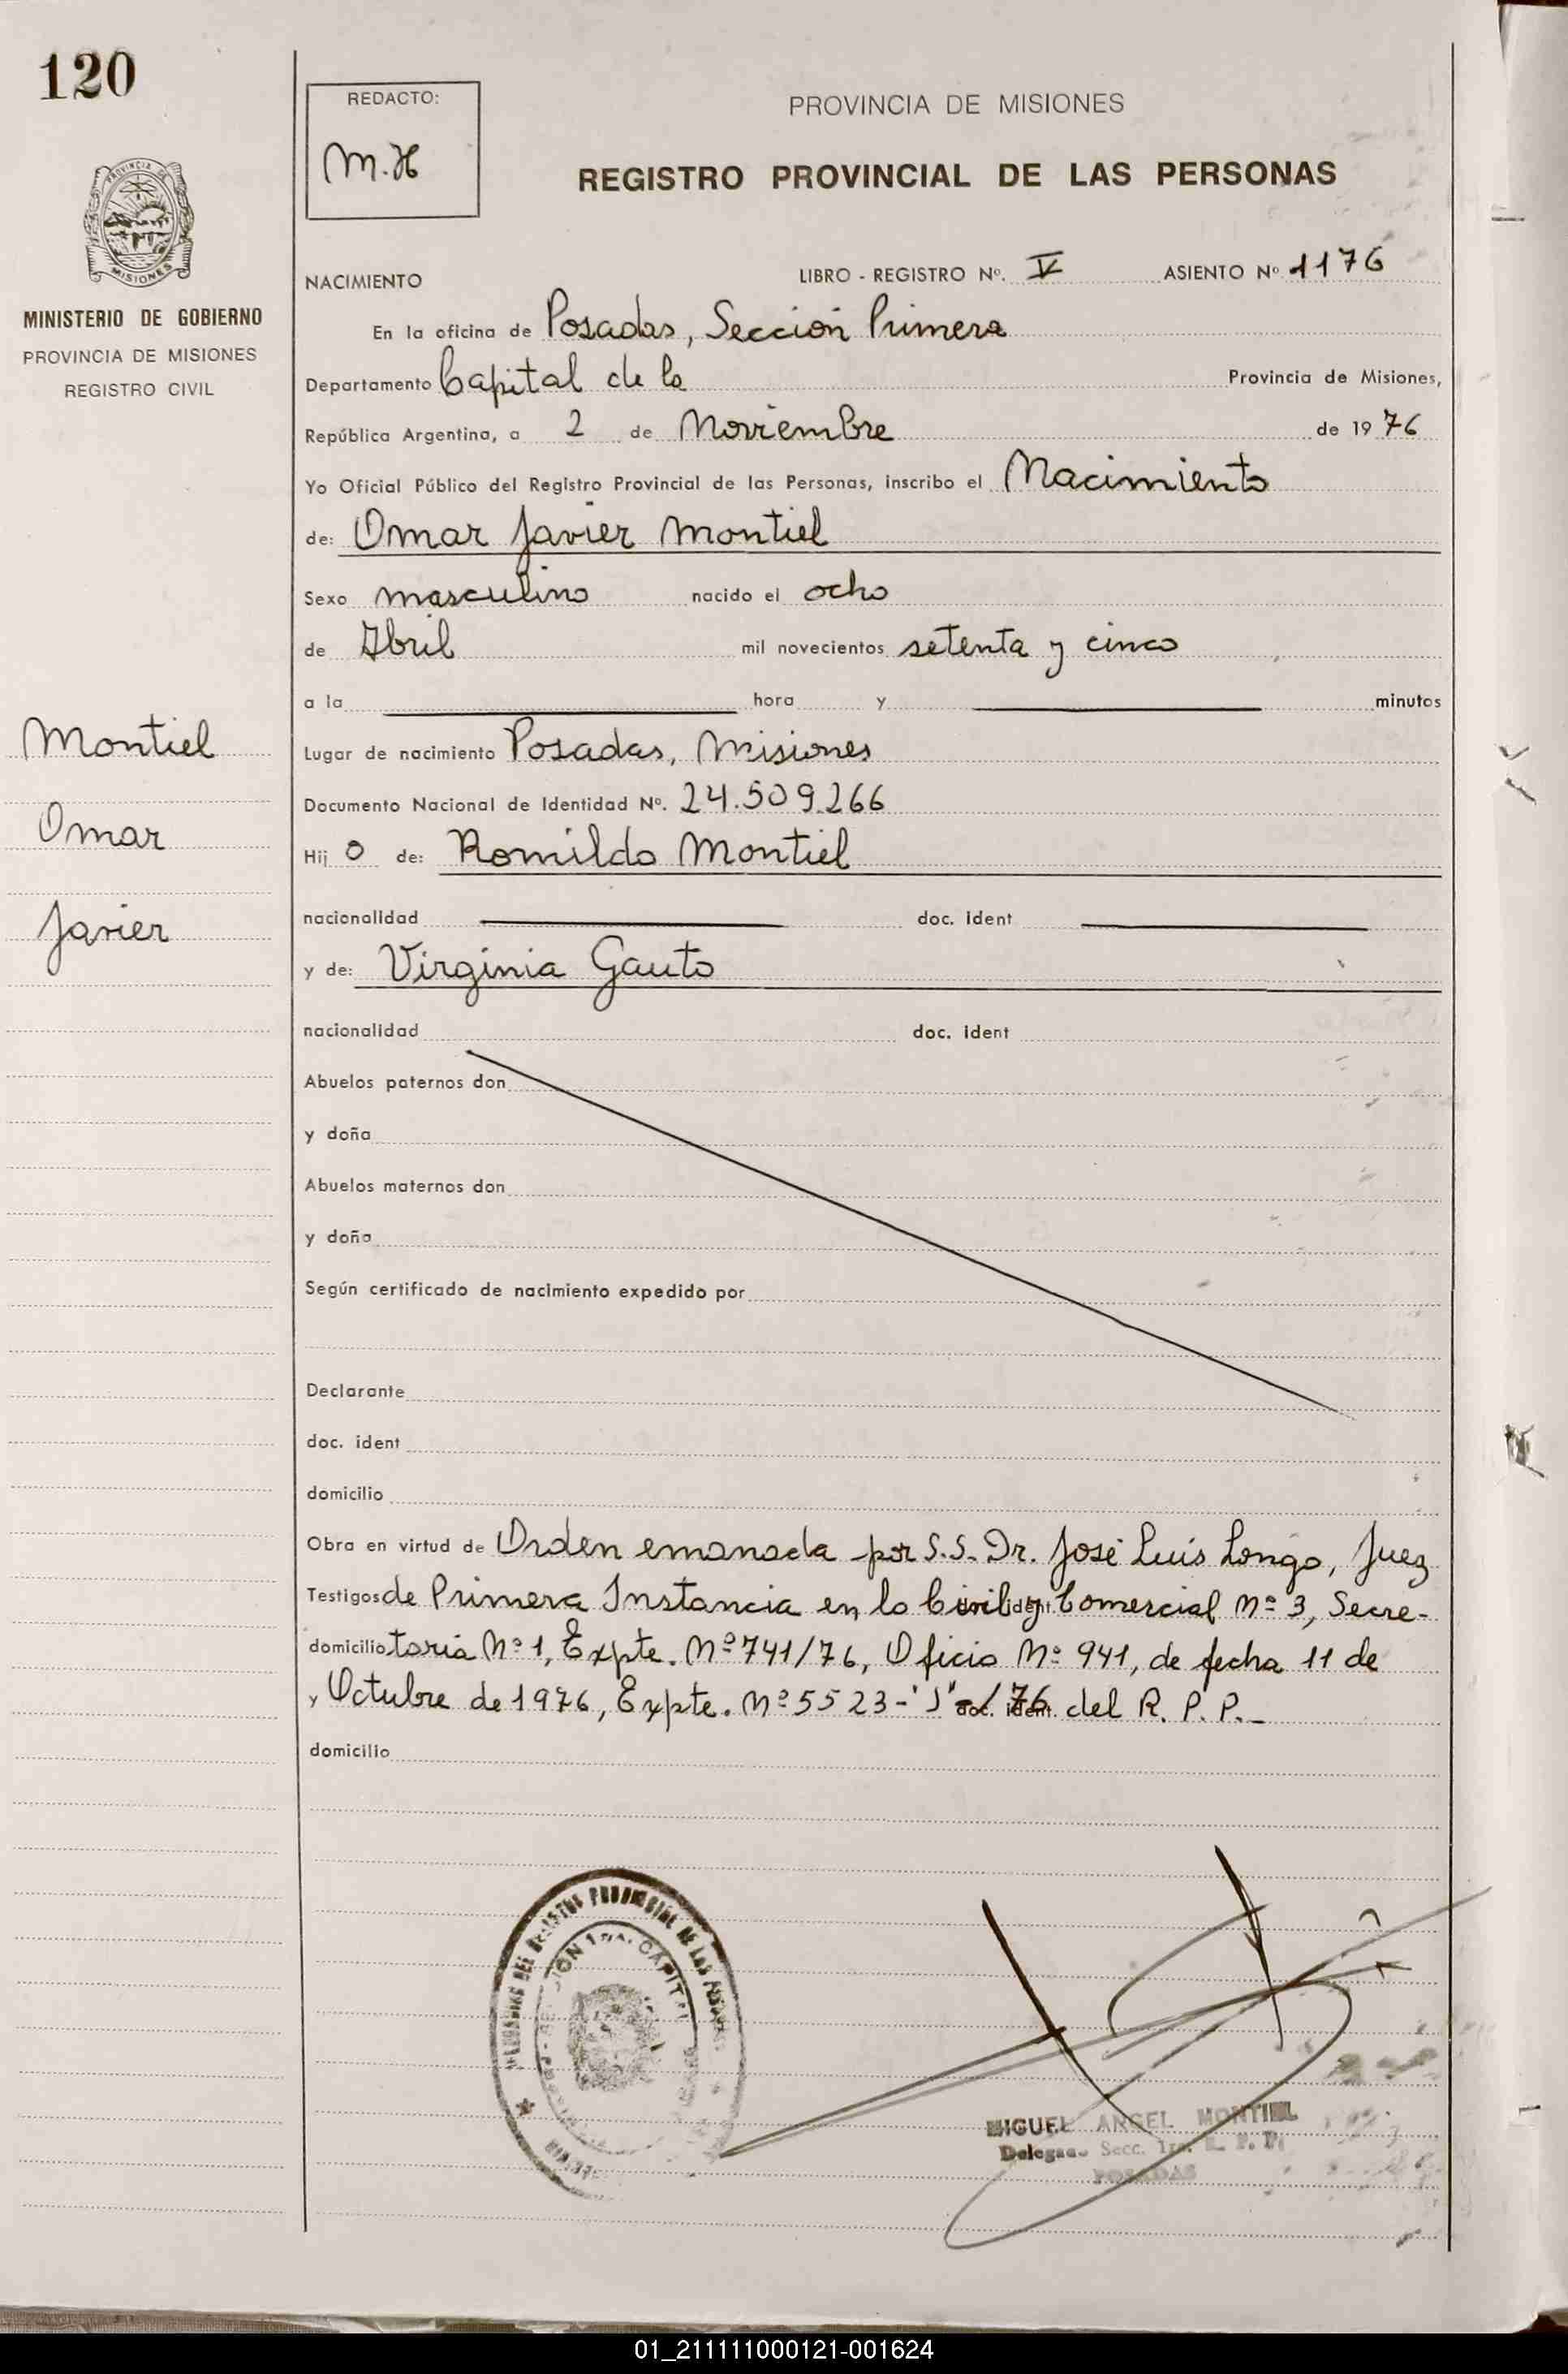 120
REDACTO:
M.H
PROVINCIA DE MISIONES
REGISTRO PROVINCIAL DE LAS PERSONAS
PROVINCIA DE
MISIONES
MINISTERIO DE GOBIERNO
PROVINCIA DE MISIONES
REGISTRO CIVIL
NACIMIENTO LIBRO - REGISTRO Nº. V ASIENTO Nº 1176
En la oficina de Posadas, Sección Primera
Departamento Capital de la Provincia de Misiones,
República Argentina, a 2 de Noviembre de 1976
Yo Oficial Público del Registro Provincial de las Personas, inscribo el Nacimiento
de: Omar Javier Montiel
Sexo masculino nacido el ocho
de Abril mil novecientos setenta y cinco
a la hora y minutos
Montiel
Omar
Javier
Lugar de nacimiento Posadas, Misiones
Documento Nacional de Identidad Nº. 24.509.266
Hij o de: Romildo Montiel
nacionalidad doc. ident
y de: Virginia Gauto
nacionalidad doc. ident
Abuelos paternos don
y doña
Abuelos maternos don
y doña
Según certificado de nacimiento expedido por
Declarante
doc. ident
domicilio
Obra en virtud de Orden emanada por S.S. Dr. José Luis Longo, Juez
Testigos de Primera Instancia en lo Civil y Comercial Nº 3, Secre-
domicilio taria Nº 1, Expte. Nº 741/76, Oficio Nº 941, de fecha 11 de
y Octubre de 1976, Expte. Nº 5523-"J" doc. ident. /76 del R. P. P.-
domicilio
DEL REGISTRO PROVINCIAL DE LAS
CAPITAL
MIGUEL ANGEL MONTIEL
Secc. 1ra. R. P. P.
POSADAS
01_211111000121-001624